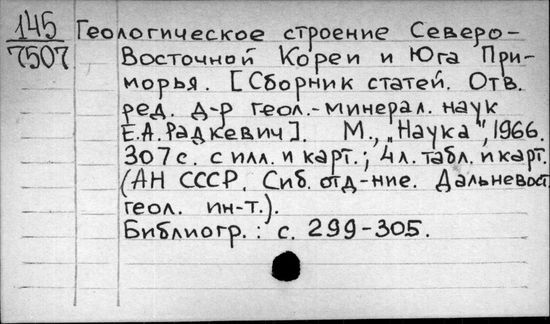 145 Геологическое строение Северо-
7507 Восточной Кореи и Юга При-
морья. [Сборник статей. Отв.
ред. д-р геол.-минерал. наук
Е.А. Радкевич]. М., „Наука", 1966.
307 с. с илл. и карт.; 4 л. табл. и карт.
(АН СССР. Сиб. отд-ние. Дальневост.
геол. ин-т.).
Библиогр.: с. 299-305.